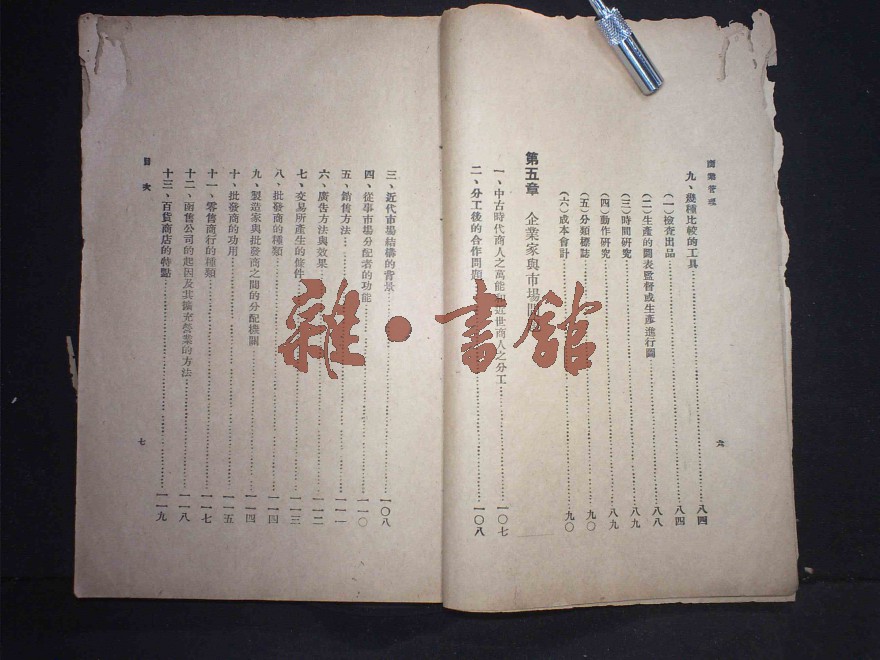 商業管理
九、幾種比較的工具……八四
(一)檢查出品……八四
(二)生產的圖表監督或生產進行圖……八八
(三)時間研究……八九
(四)動作研究……八九
(五)分類標誌……九〇
(六)成本會計……九〇
第五章 企業家與市場
一、中古時代商人之萬能 近世商人之分工……一〇七
二、分工後的合作問題……一〇八
六
三、近代市場結構的背景……一〇八
四、從事市場分配者的功能……一一〇
五、銷售方法……一一一
六、廣告方法與效果……一一二
七、交易所產生的條件……一一三
八、批發商的種類……一一四
九、製造家與批發商之間的分配機關……一一四
十、批發商的功用……一一五
十一、零售商行的種類……一一七
十二、函售公司的起因及其擴充營業的方法……一一八
十三、百貨商店的特點……一一九
目次
七
雜·書館